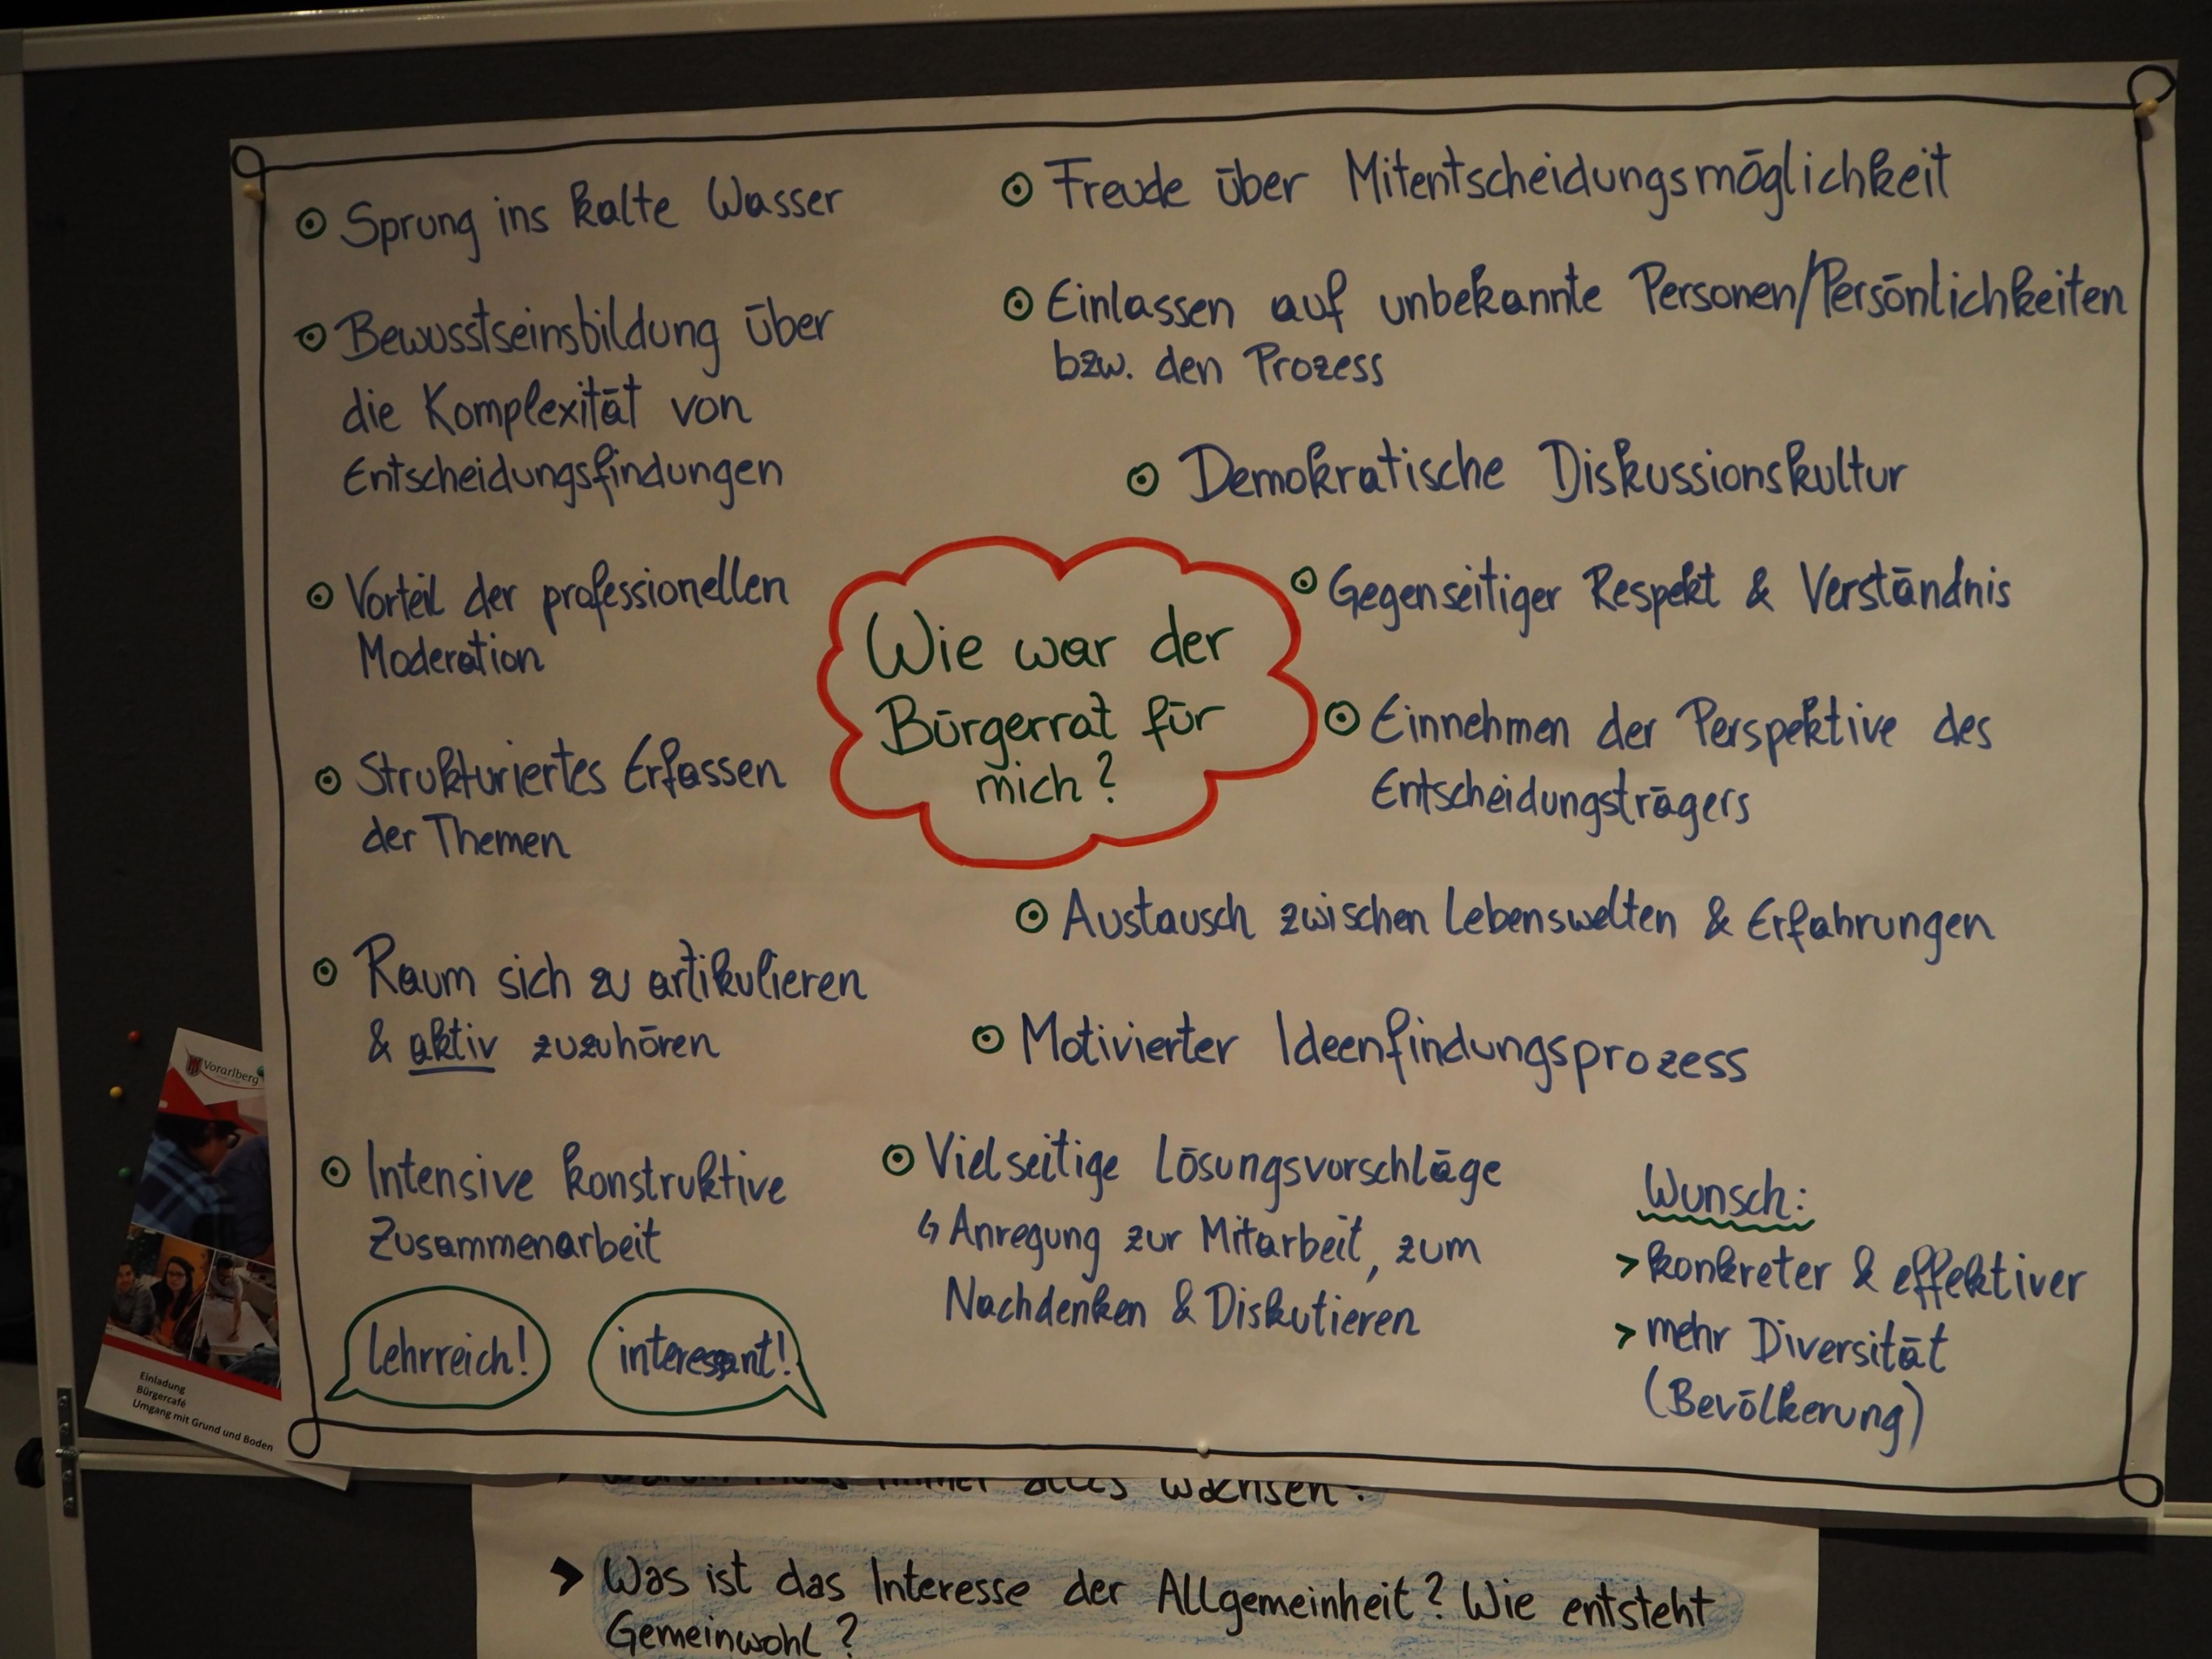 Sprung ins kalte Wasser
Bewusstseinsbildung über
die Komplexität von
Entscheidungsfindungen
Vorteil der professionellen
Moderation
Strukturiertes Erfassen
der Themen
Raum sich zu artikulieren
& aktiv zuzuhören
Intensive konstruktive
Zusammenarbeit
lehrreich!
interessant!
Wie war der
Bürgerrat für
mich?
Freude über Mitentscheidungsmöglichkeit
Einlassen auf unbekannte Personen/Persönlichkeiten
bzw. den Prozess
Demokratische Diskussionskultur
Gegenseitiger Respekt & Verständnis
Einnehmen der Perspektive des
Entscheidungsträgers
Austausch zwischen Lebenswelten & Erfahrungen
Motivierter Ideenfindungsprozess
Vielseitige Lösungsvorschläge
↳ Anregung zur Mitarbeit, zum
Nachdenken & Diskutieren
Wunsch:
> konkreter & effektiver
> mehr Diversität
(Bevölkerung)
Vorarlberg
Einladung
Bürgercafé
Umgang mit Grund und Boden
immer alles wachsen?
➤ Was ist das Interesse der Allgemeinheit? Wie entsteht
Gemeinwohl?